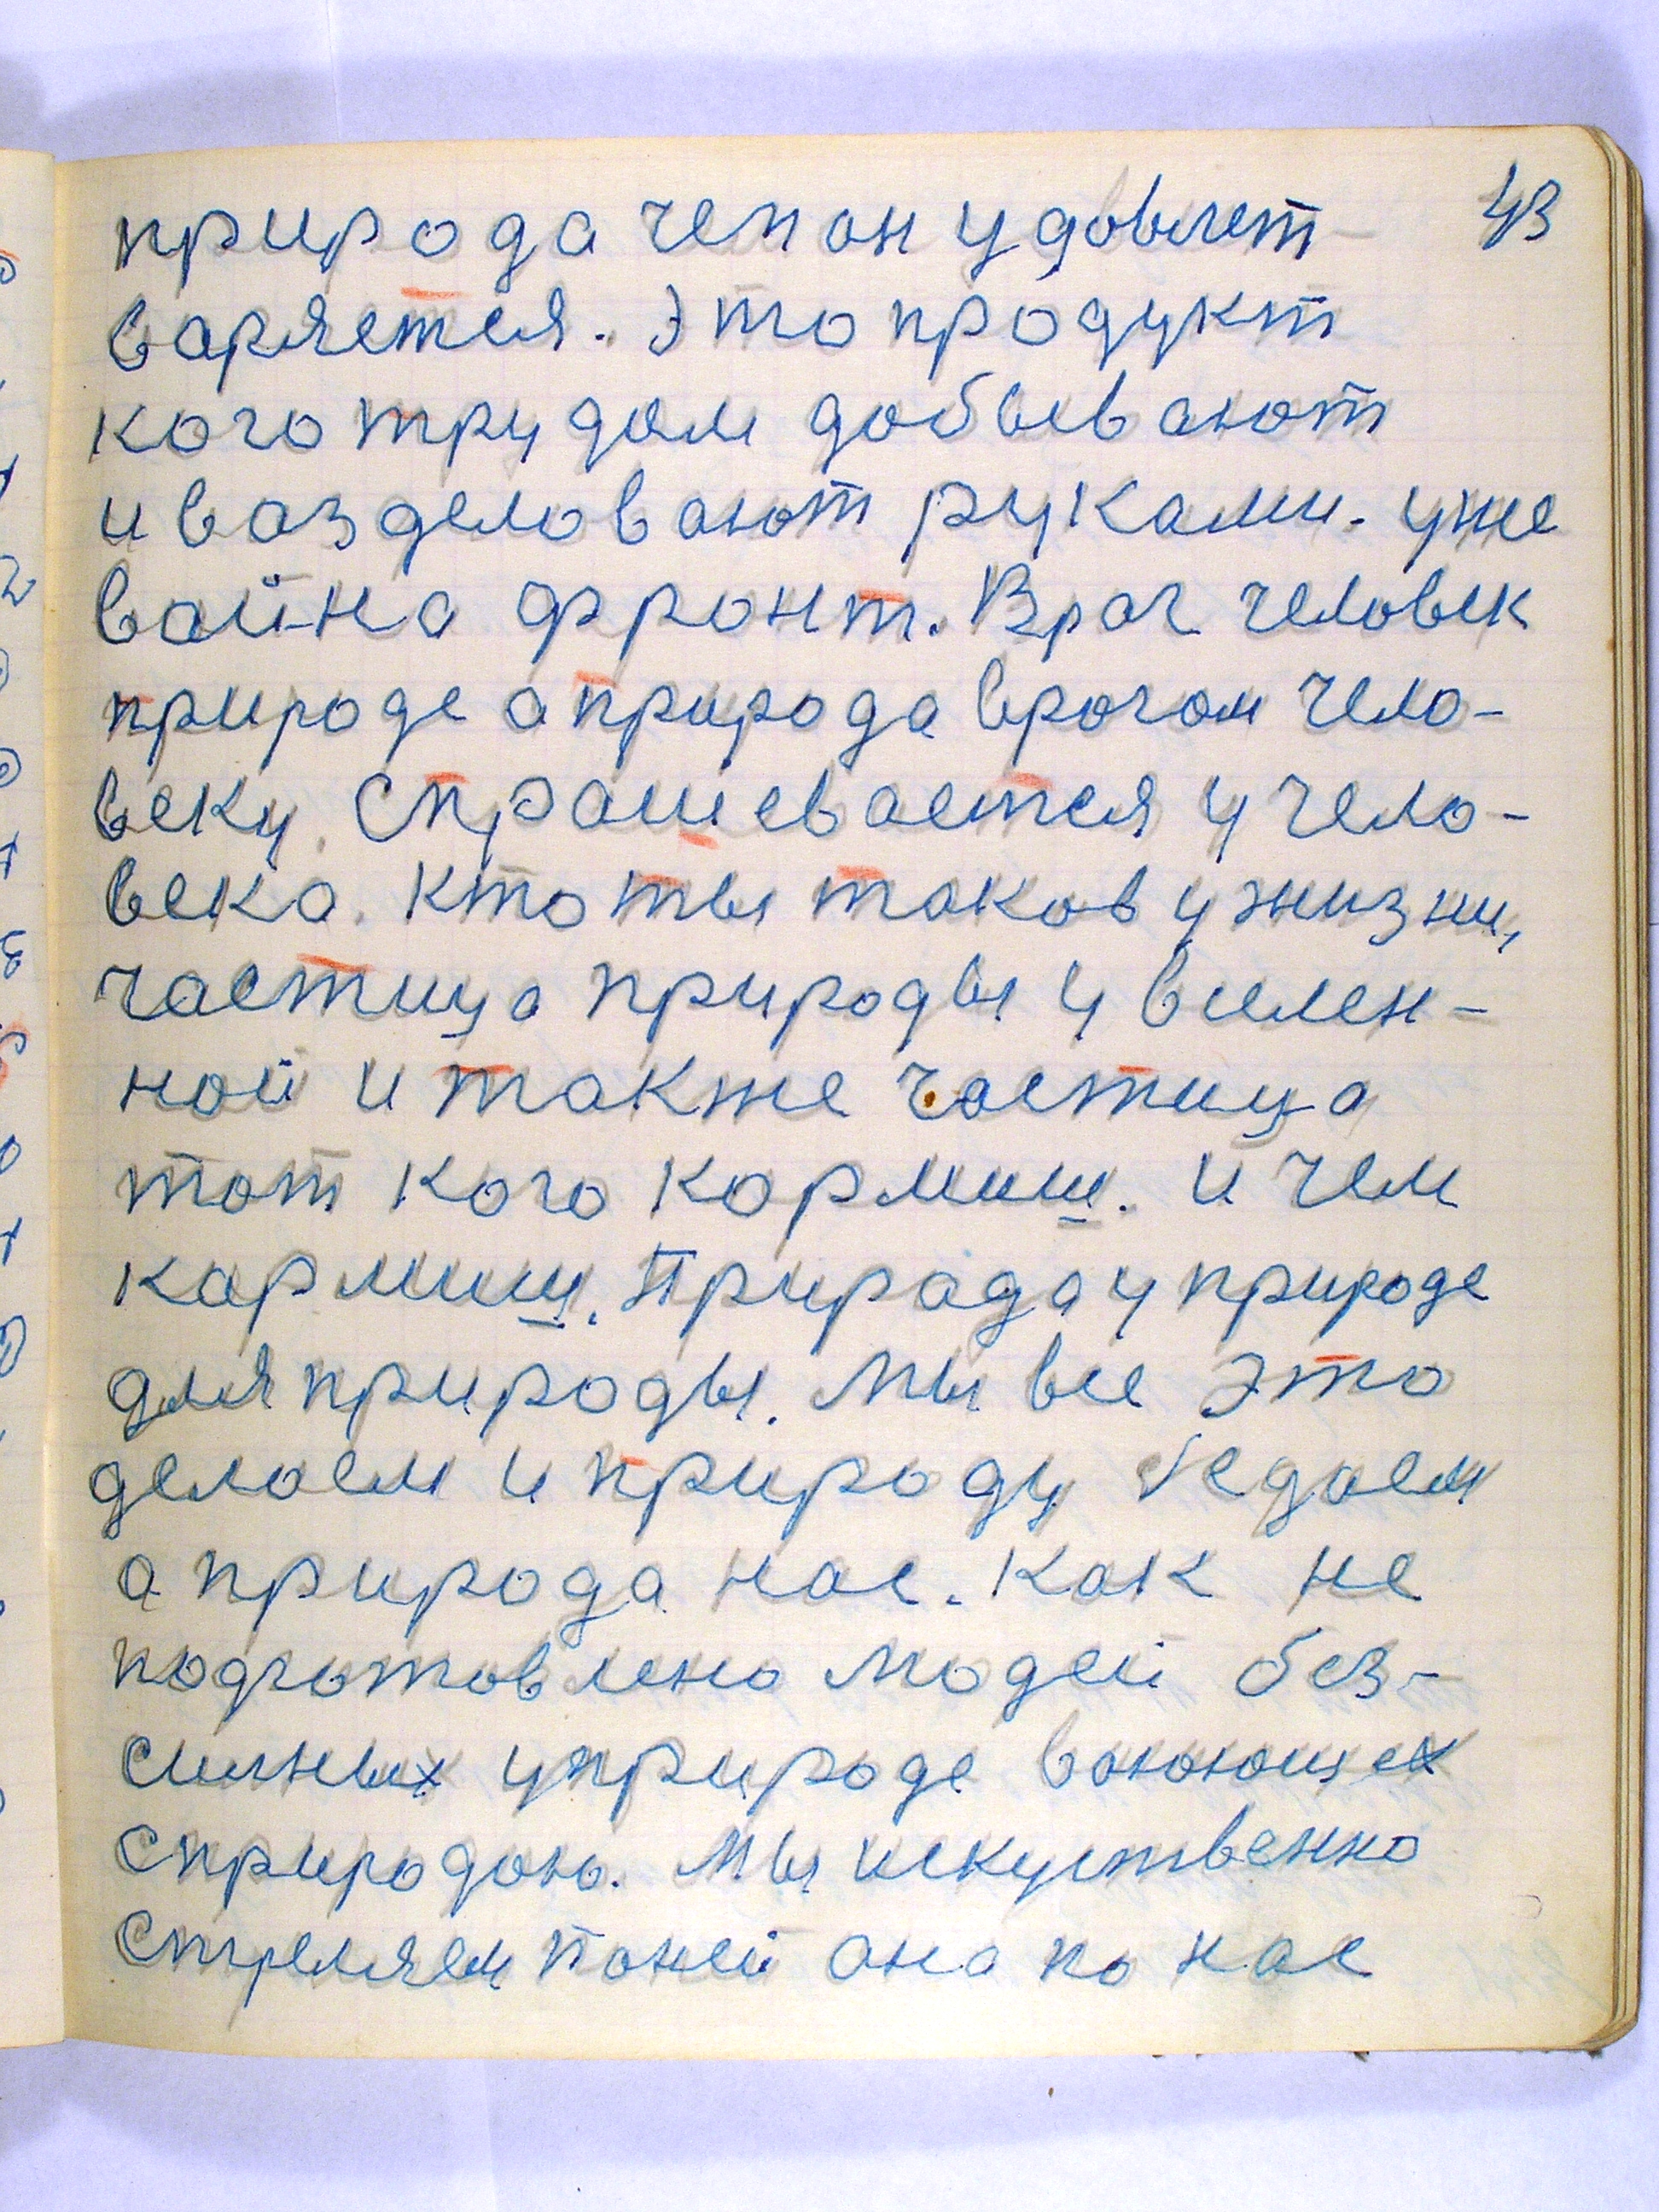 43
природа чем он удовлет-
варяется. Это продукт
кого трудом добывают
и вазделовают руками. уже
вайна фронт. Враг человек
природе а природа врогом чело-
веку. Спрашевается у чело-
века. кто ты таков у жизни,
частица природы у вселен-
ной и также частица
тот кого кормиш. и чем
кармиш. Прирада у природе
для природы. Мы все это
делаем и природу съедаем
а природа нас. как не
подготовлено людей без-
сильных у природе ваюющех
с природою. Мы искуственно
стреляем по ней она по нас